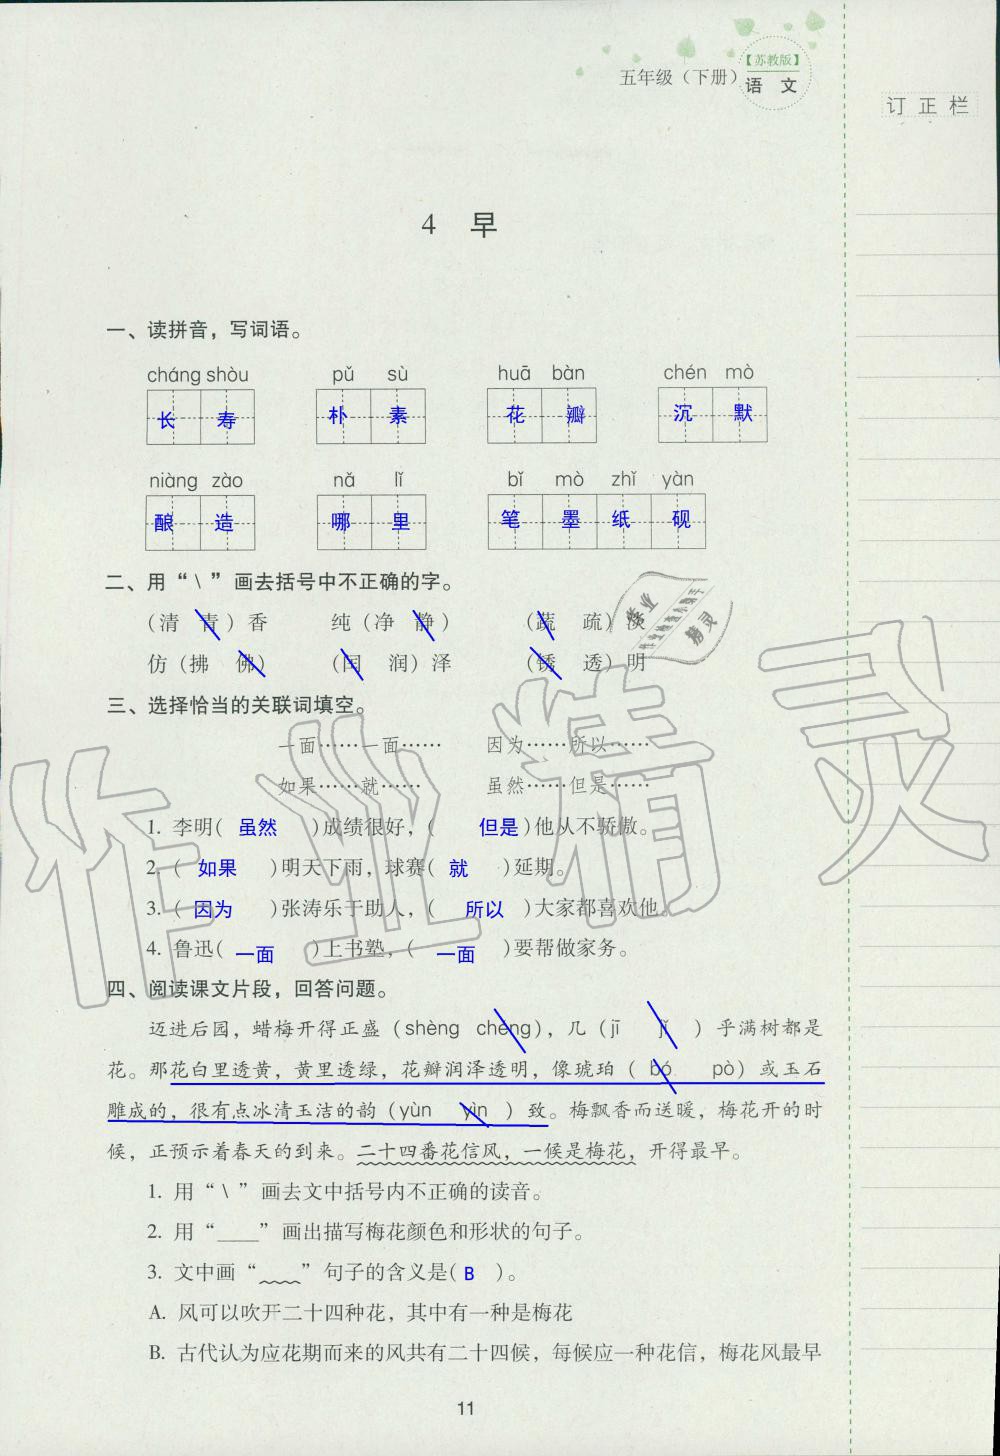 五年级（下册）
【苏教版】
语 文
订 正 栏
4 早
一、读拼音，写词语。
cháng shòu pǔ sù huā bàn chén mò
长 寿 朴 素 花 瓣 沉 默
niàng zào nǎ lǐ bǐ mò zhǐ yàn
酿 造 哪 里 笔 墨 纸 砚
二、用“\”画去括号中不正确的字。
（清 青）香 纯（净 静） （蔬 疏）淡
仿（拂 佛） （闰 润）泽 （锈 透）明
三、选择恰当的关联词填空。
一面……一面…… 因为……所以……
如果……就…… 虽然……但是……
1. 李明( 虽然 )成绩很好，( 但是 )他从不骄傲。
2. ( 如果 )明天下雨，球赛( 就 )延期。
3. ( 因为 )张涛乐于助人，( 所以 )大家都喜欢他。
4. 鲁迅( 一面 )上书塾，( 一面 )要帮做家务。
四、阅读课文片段，回答问题。
迈进后园，蜡梅开得正盛（shèng chéng），几（jī jǐ ）乎满树都是
花。那花白里透黄，黄里透绿，花瓣润泽透明，像琥珀（ bó pò）或玉石
雕成的，很有点冰清玉洁的韵（yùn yìn ）致。梅飘香而送暖，梅花开的时
候，正预示着春天的到来。二十四番花信风，一候是梅花，开得最早。
1. 用“\”画去文中括号内不正确的读音。
2. 用“____”画出描写梅花颜色和形状的句子。
3. 文中画“﹏﹏”句子的含义是( B )。
A. 风可以吹开二十四种花，其中有一种是梅花
B. 古代认为应花期而来的风共有二十四候，每候应一种花信，梅花风最早
11
作业精灵